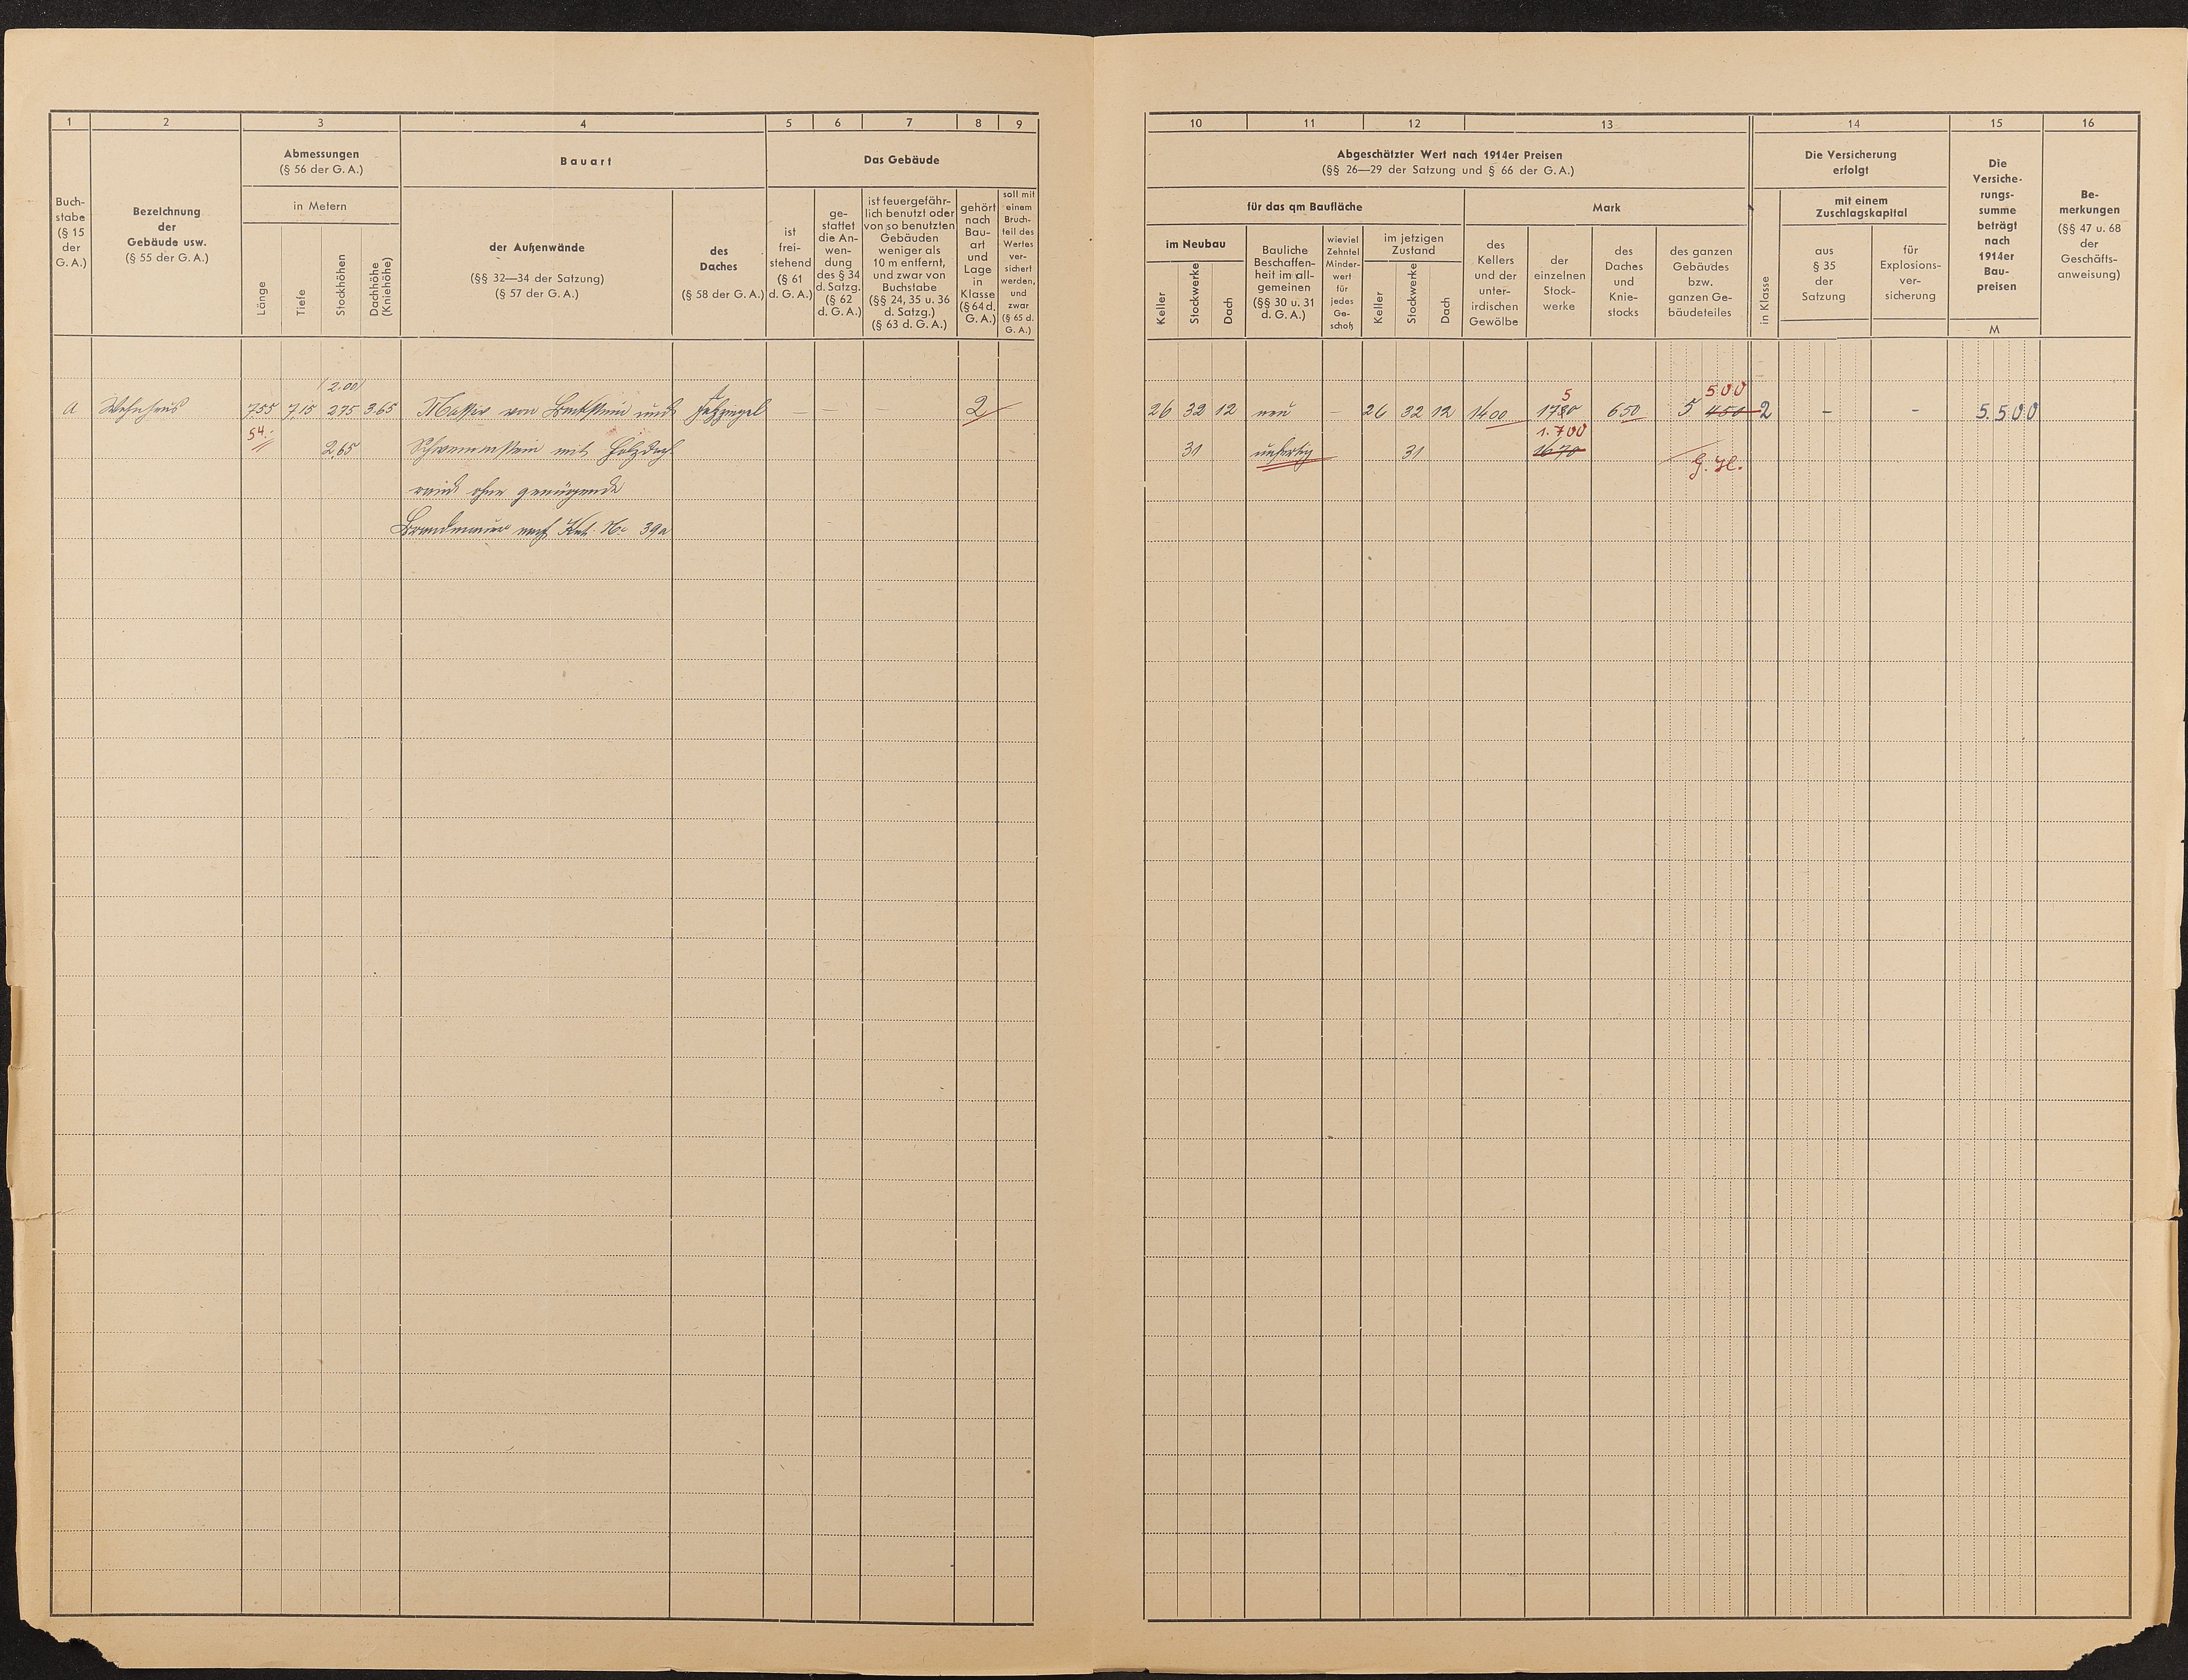 1 2 3 4 5 6 7 8 9
Abmessungen
(§ 56 der G. A.)
in Metern
Bauart
Das Gebäude
Buch-
stabe
(§ 15
der
G. A.)
Bezeichnung
der
Gebäude usw.
(§ 55 der G. A.)
Länge
Tiefe
Stockhöhen
Dachhöhe
(Kniehöhe)
der Außenwände
(§§ 32—34 der Satzung)
(§ 57 der G. A.)
des
Daches
(§ 58 der G. A.)
ist
frei-
stehend
(§ 61
d. G. A.)
ge-
stattet
die An-
wen-
dung
des § 34
d. Satzg.
(§ 62
d. G. A.)
ist feuergefähr-
lich benutzt oder
von so benutzten
Gebäuden
weniger als
10 m entfernt,
und zwar von
Buchstabe
(§§ 24, 35 u. 36
d. Satzg.)
(§ 63 d. G. A.)
gehört
nach
Bau-
art
und
Lage
in
Klasse
(§ 64 d.
G. A.)
soll mit
einem
Bruch-
teil des
Wertes
ver-
sichert
werden,
und
zwar
(§ 65 d.
G. A.)
(2.00)
A Wohnhaus 7.55 7.15 2.75 3.65 Massiv von Backstein und Falzziegel — — — 2
54.-
2.65 Schwemmstein mit Holzdach
wird ohne genügende
Brandmauer nach Kat. No 39a
10 11 12 13 14 15 16
Abgeschätzter Wert nach 1914er Preisen
(§§ 26—29 der Satzung und § 66 der G. A.)
für das qm Baufläche
Mark
im Neubau
Keller
Stockwerke
Dach
Bauliche
Beschaffen-
heit im all-
gemeinen
(§§ 30 u. 31
d. G. A.)
wieviel
Zehntel
Minder-
wert
für
jedes
Ge-
schoß
im jetzigen
Zustand
Keller
Stockwerke
Dach
des
Kellers
und der
unter-
irdischen
Gewölbe
der
einzelnen
Stock-
werke
des
Daches
und
Knie-
stocks
des ganzen
Gebäudes
bzw.
ganzen Ge-
bäudeteiles
Die Versicherung
erfolgt
in Klasse
mit einem
Zuschlagskapital
aus
§ 35
der
Satzung
für
Explosions-
ver-
sicherung
Die
Versiche-
rungs-
summe
beträgt
nach
1914er
Bau-
preisen
M
Be-
merkungen
(§§ 47 u. 68
der
Geschäfts-
anweisung)
5 500
26 32 12 neu — 26 32 12 1400 1730 650 5 450 2 — — 5.500
1.700
31 unfertig 31 1670
G. H.